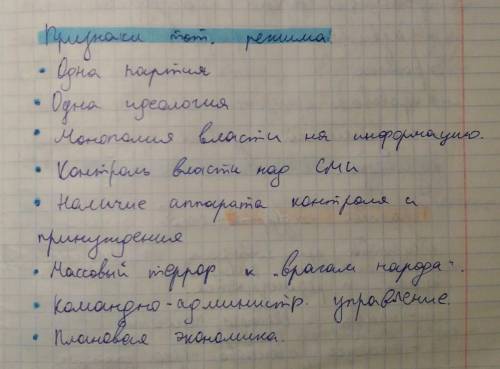 Признаки тот. режима
• Одна партия
• Одна идеология
• Монополия власти на информацию.
• Контроль власти над СМИ
• Наличие аппарата контроля и
принуждения
• Массовый террор к "врагам народа".
• Командно-администр. управление.
• Плановая экономика.